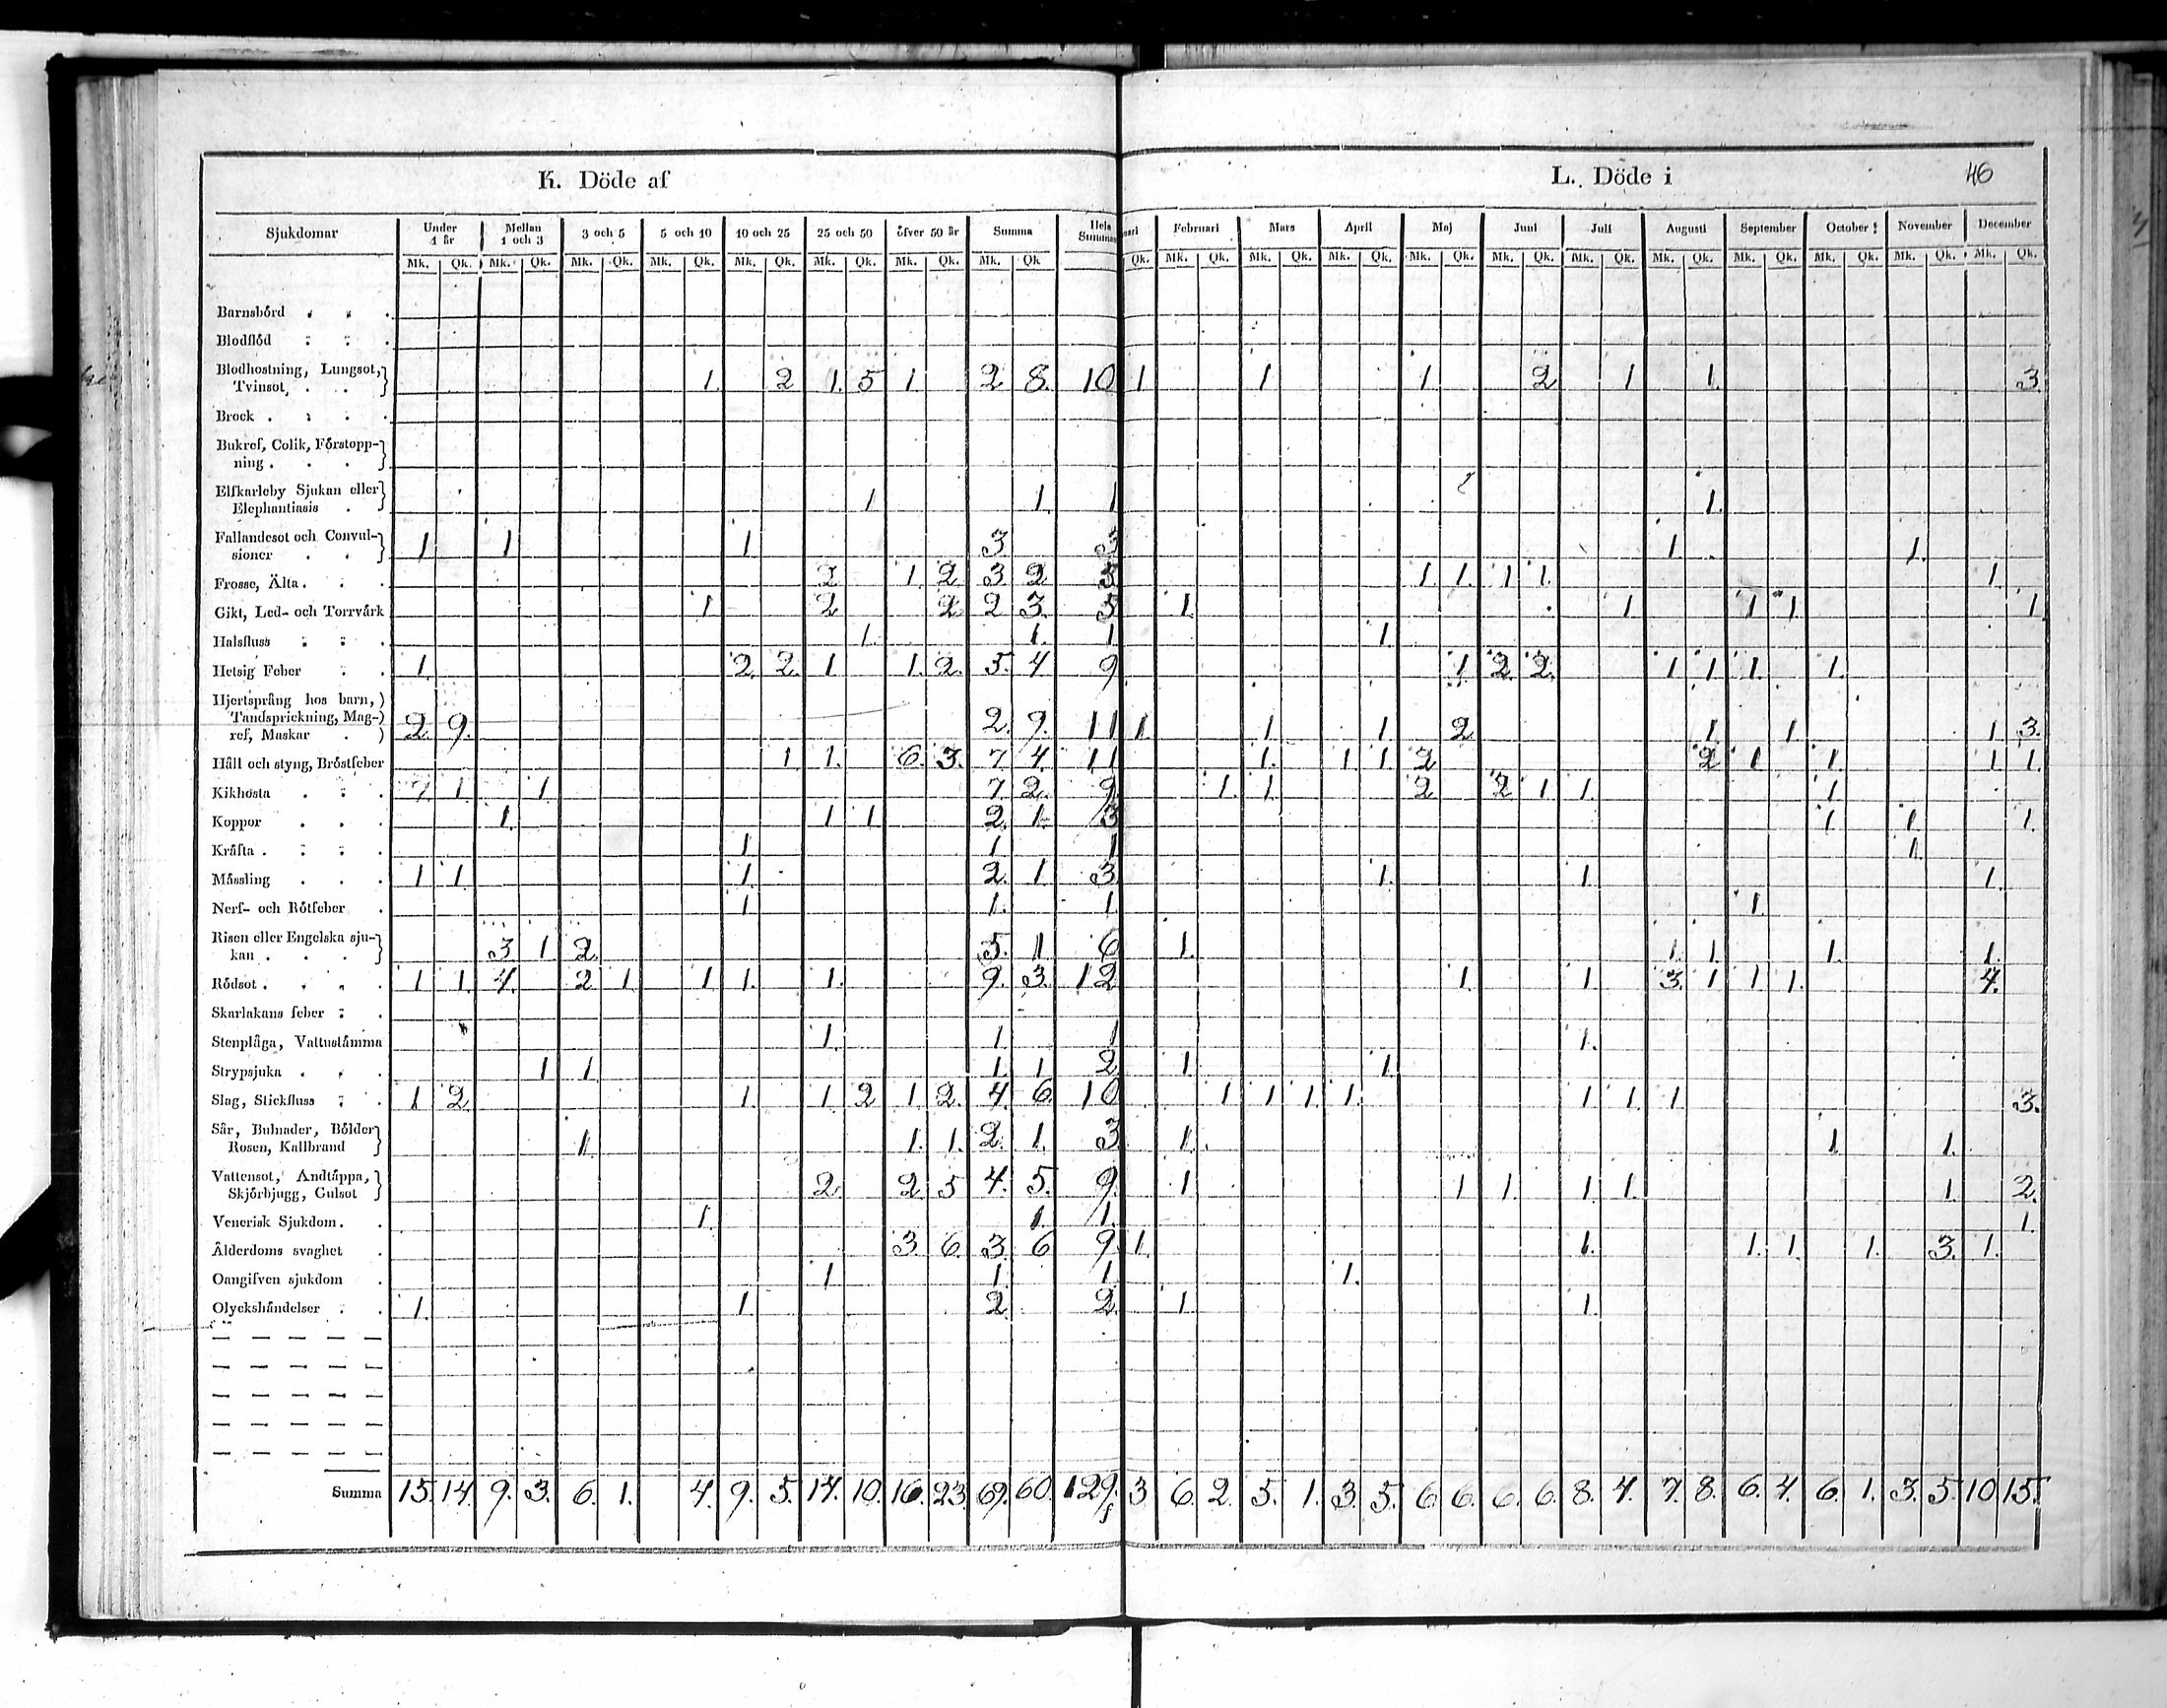 K. Döde af
L. Döde i
46
Sjukdomar | Under 1 år | Mellan 1 och 3 | 3 och 5 | 5 och 10 | 10 och 25 | 25 och 50 | öfver 50 år | Summa | Hela Summan | uari | Februari | Mars | April | Maj | Juni | Juli | Augusti | September | October | November | December
Mk. Qk. Mk. Qk. Mk. Qk. Mk. Qk. Mk. Qk. Mk. Qk. Mk. Qk. Mk. Qk Qk. Mk. Qk. Mk. Qk. Mk. Qk. Mk. Qk. Mk. Qk. Mk. Qk. Mk. Qk. Mk. Qk. Mk. Qk. Mk. Qk. Mk. Qk.
Barnsbörd
Blodflöd
Blodhostning, Lungsot,
Tvinsot 1. 2 1. 5 1. 2 8. 10 1 1 1 2 1 1. 3.
Brock
Bukref, Colik, Förstopp-
ning
Elfkarleby Sjukan eller
Elephantiasis 1 1. 1 1.
Fallandesot och Convul-
sioner 1 1 1 3 3 1. 1.
Frosse, Älta 2 1. 2 3 2 5 1. 1. 1 1. 1
Gikt, Led- och Torrvärk 1 2 2 2 3. 5 1. 1 1 1. 1.
Halsfluss 1. 1. 1 1.
Hetsig Feber 1. 2. 2. 1 1. 2. 5. 4 9 1 2. 2. 1 1 1. 1.
Hjertsprång hos barn,
Tandsprickning, Mag-
ref, Maskar 2. 9. 2. 9. 11 1. 1. 1. 2 1. 1. 1 3.
Håll och styng, Bröstfeber 1 1. 6. 3. 7 4. 11 1. 1. 1 2 2 1 1. 1. 1.
Kikhosta 7 1. 1. 7 2. 9. 1. 1. 2 2 1 1. 1
Koppor 1. 1 1. 2. 1. 3 1. 1. 1.
Kräfta 1 1 1 1.
Mässling 1 1. 1. 2. 1. 3 1. 1. 1.
Nerf- och Rötfeber 1 1. 1. 1.
Risen eller Engelska sju-
kan 3 1 2. 5. 1 6 1. 1. 1. 1. 1.
Rödsot 1 1. 4. 2 1. 1 1. 1. 9. 3. 12 1. 1. 3. 1 1 1. 4.
Skarlakans feber
Stenplåga, Vattustämma 1. 1 1 1.
Strypsjuka 1 1. 1. 1 2. 1. 1.
Slag, Stickfluss 1 2 1. 1 2 1. 2. 4. 6. 10 1 1 1. 1. 1 1. 1 3.
Sår, Bulnader, Bölder
Rosen, Kallbrand 1. 1. 1. 2. 1. 3 1. 1. 1.
Vattensot, Andtäppa,
Skjörbjugg, Gulsot 2. 2. 5 4. 5. 9. 1. 1 1. 1 1. 1. 2.
Venerisk Sjukdom 1. 1. 1. 1.
Ålderdoms svaghet 3 6. 3. 6 9. 1. 1. 1. 1. 1. 3. 1.
Oangifven sjukdom 1 1. 1. 1.
Olyckshändelser 1. 1. 2. 2. 1. 1.
Summa 15. 14. 9. 3. 6. 1. 4. 9. 5. 14. 10. 16. 23. 69. 60. 129. 3 6. 2. 5. 1. 3. 5. 6 6. 6. 6. 8. 4. 7. 8. 6. 4. 6. 1. 3. 5. 10 15.